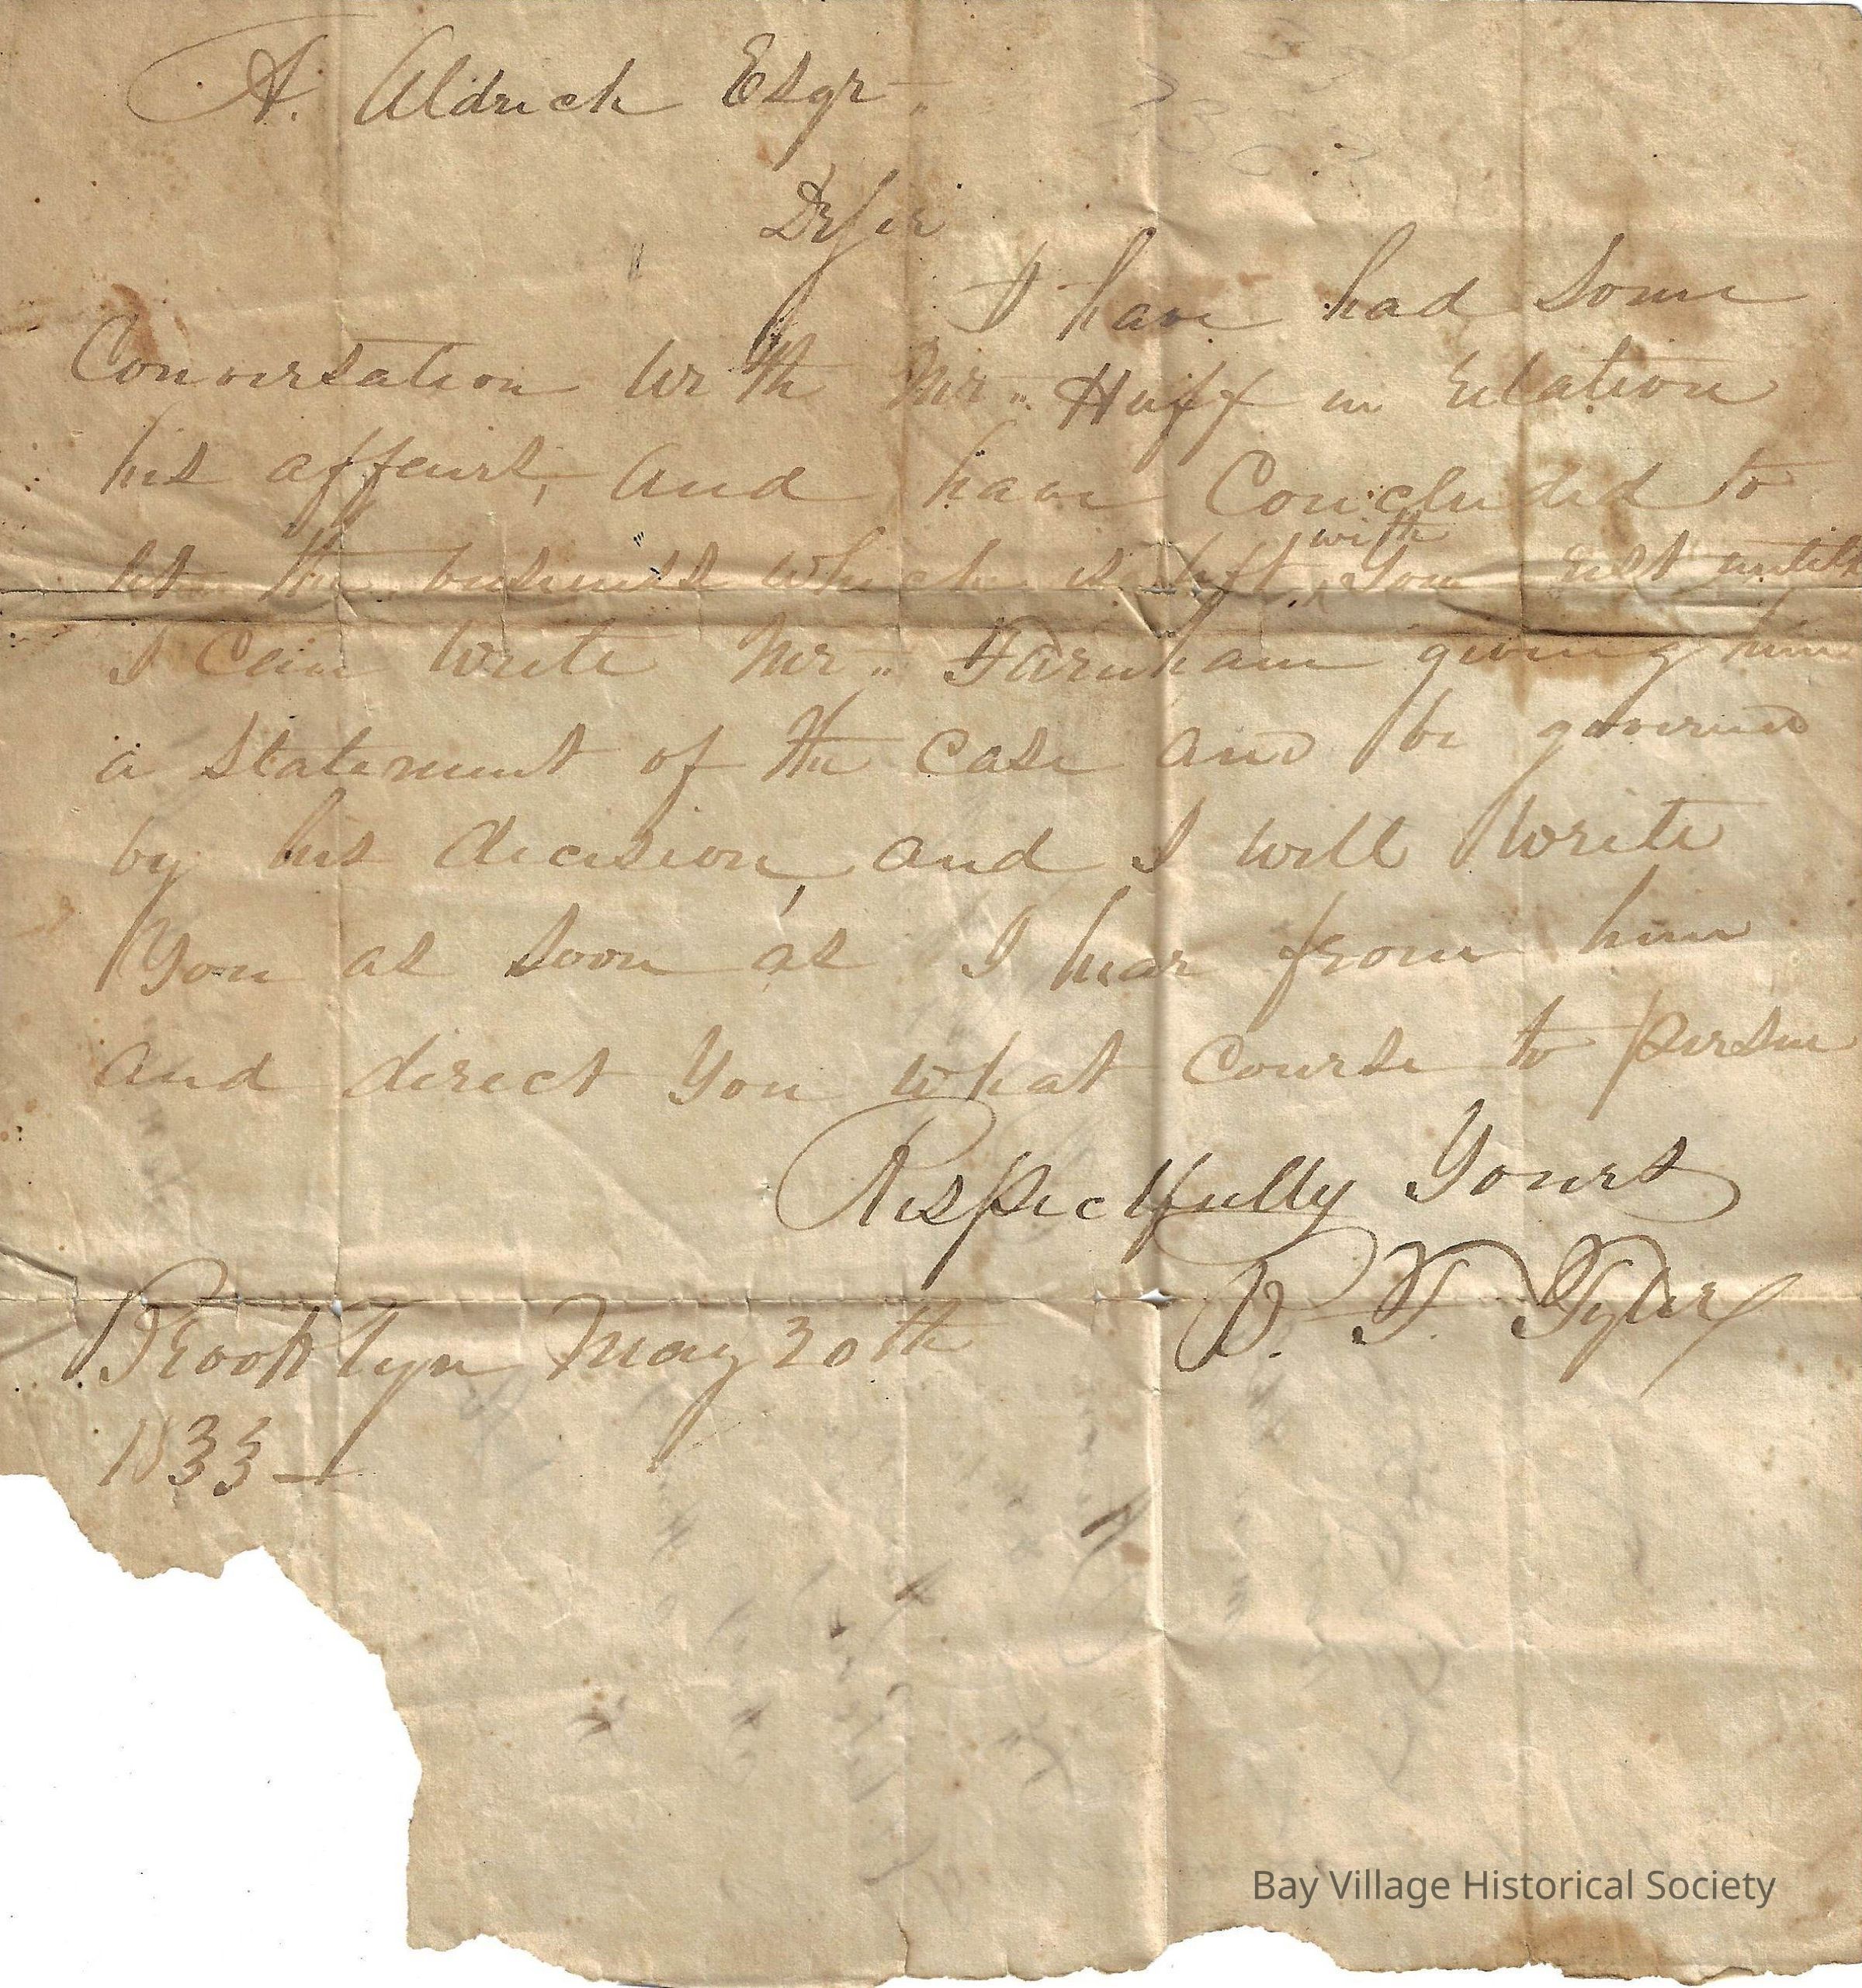 A. Aldrich Esqr
Dr Sir
I have had Some
Conversation With Mr Huff in relation
his affairs, and have Concluded to
let the business which is left with You rest untill
I can Write Mr Farnham giving him
a Statement of the Case and be governed
by his decision, and I will Write
You as Soon as I hear from him
and direct You what Course to persue
Respectfully Yours
D. T. Tyler
Brooklyn May 20th
1833
Bay Village Historical Society